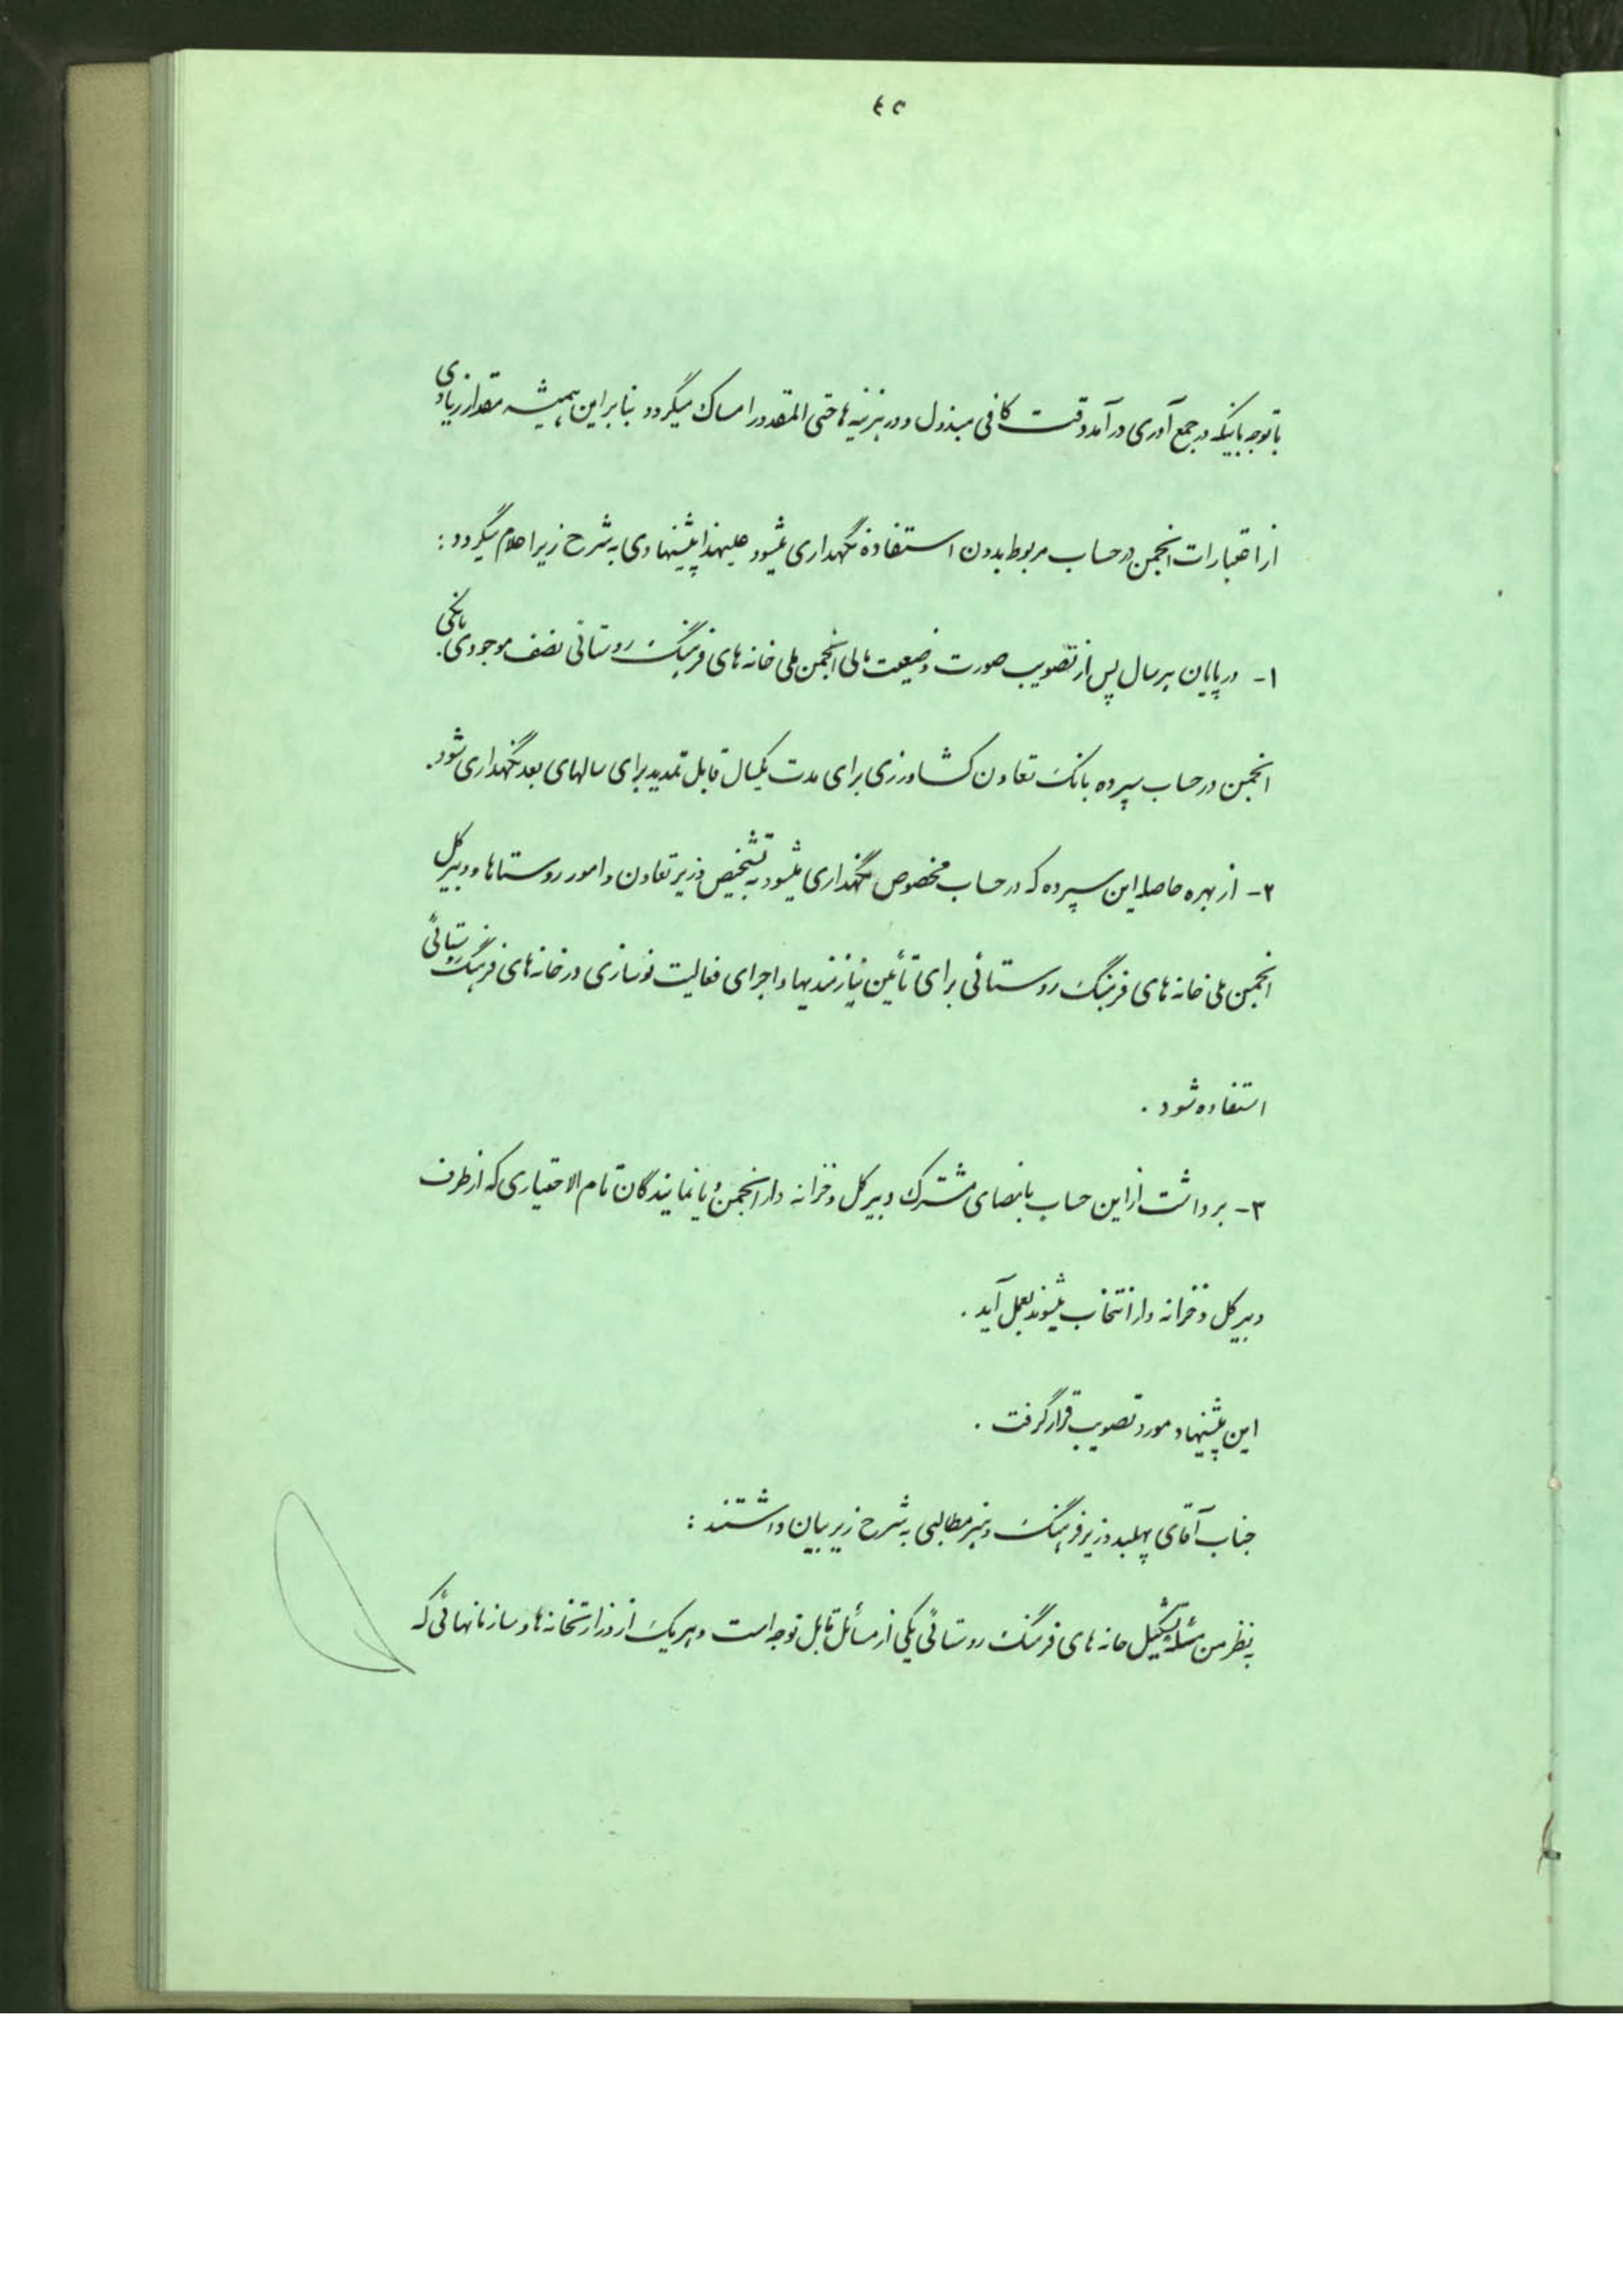 ٤٢
با توجه باینکه در جمع آوری درآمد دقت کافی مبذول و در هزینه ها حتی المقدور امساک میگردد بنابراین همیشه مقدار زیادی
از اعتبارات انجمن در حساب مربوط بدون استفاده نگهداری میشود علیهذا پیشنهادی به شرح زیر اعلام میگردد :
۱- در پایان هر سال پس از تصویب صورت وضعیت مالی انجمن ملی خانه های فرهنگ روستائی نصف موجودی بانکی
انجمن در حساب سپرده بانک تعاون کشاورزی برای مدت یکسال قابل تمدید برای سالهای بعد نگهداری شود.
۲- از بهره حاصله این سپرده که در حساب مخصوص نگهداری میشود به تشخیص وزیر تعاون و امور روستاها و دبیر کل
انجمن ملی خانه های فرهنگ روستائی برای تأمین نیازمندیها و اجرای فعالیت نوسازی در خانه های فرهنگ روستائی
استفاده شود .
۳- برداشت از این حساب بامضای مشترک دبیر کل و خزانه دار انجمن و یا نمایندگان تام الاختیاری که از طرف
دبیر کل و خزانه دار انتخاب میشوند بعمل آید .
این پیشنهاد مورد تصویب قرار گرفت .
جناب آقای پهلبد وزیر فرهنگ و هنر مطالبی به شرح زیر بیان داشتند :
به نظر من مسئله تشکیل خانه های فرهنگ روستائی یکی از مسائل قابل توجه است و هر یک از وزارتخانه ها و سازمانهائی که